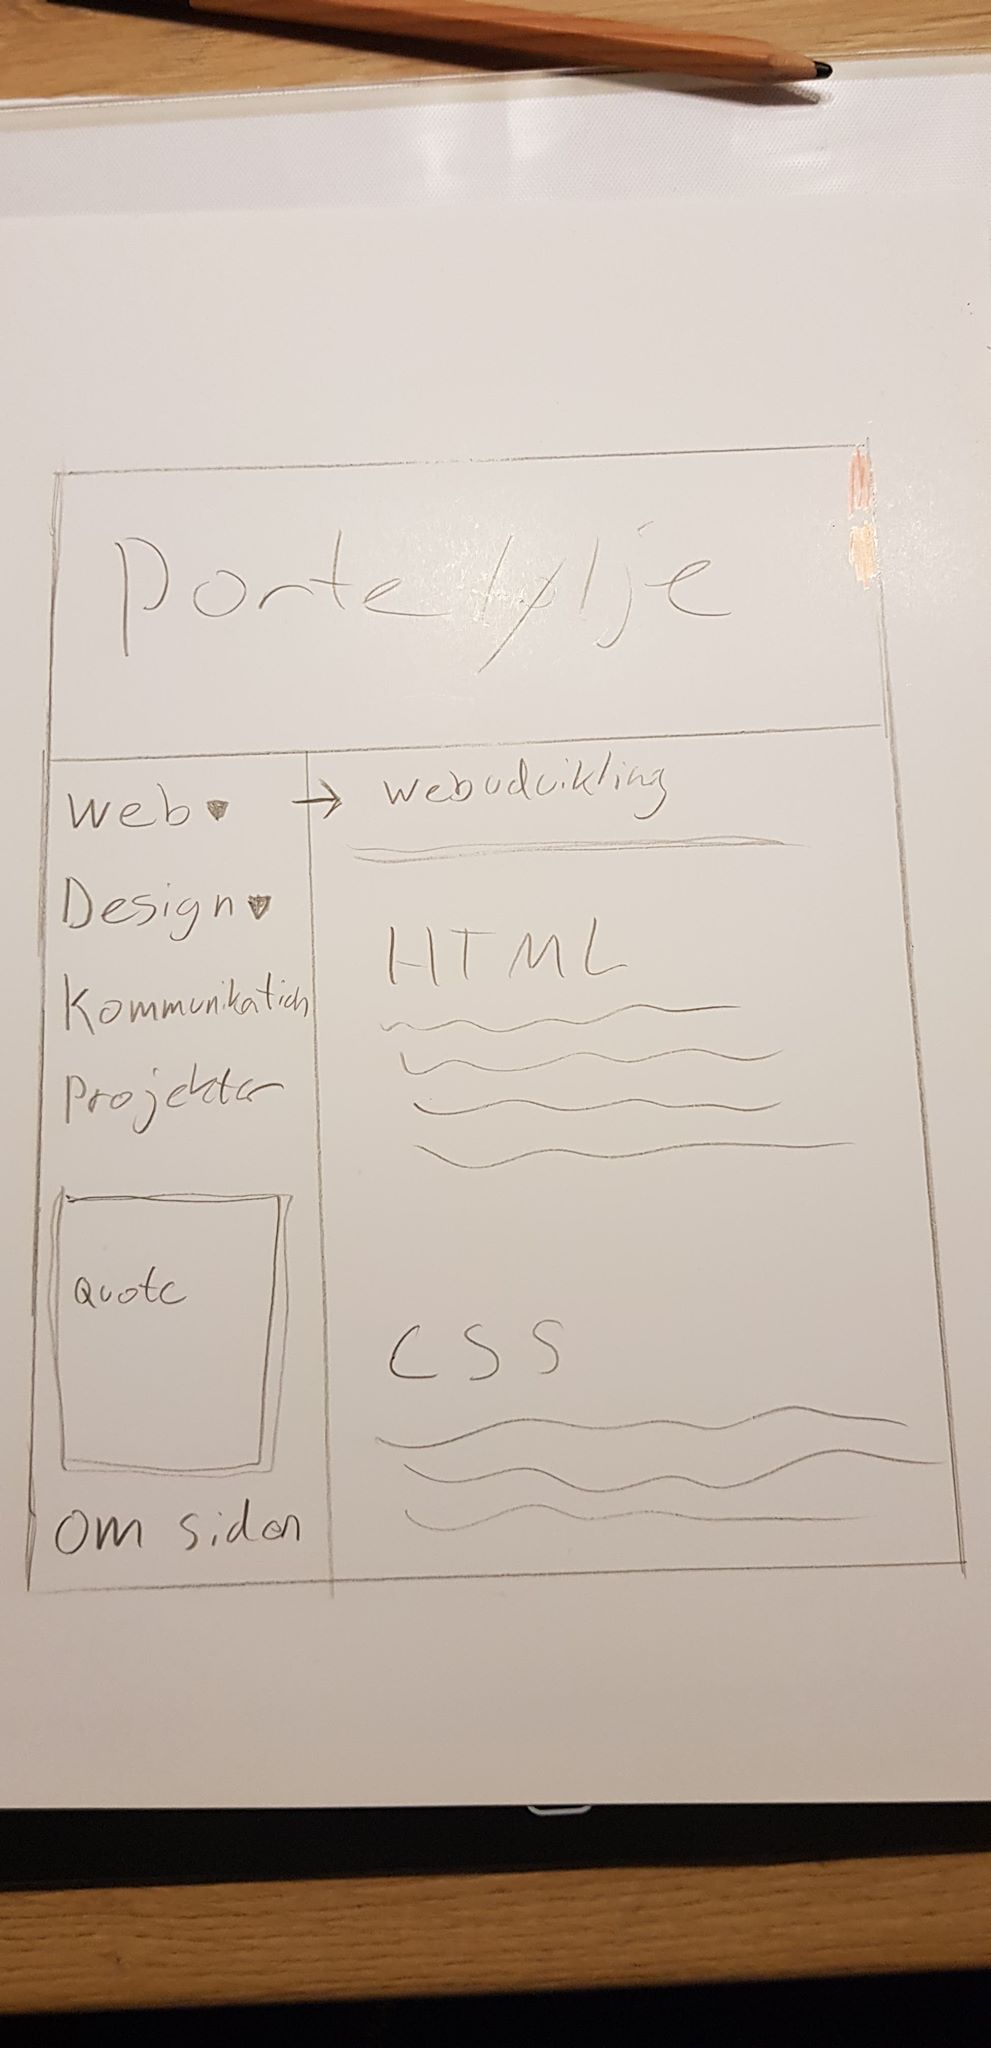 Portefølje
Web
Design
Kommunikation
Projekter
Quote
Om siden
Webudvikling
HTML
CSS